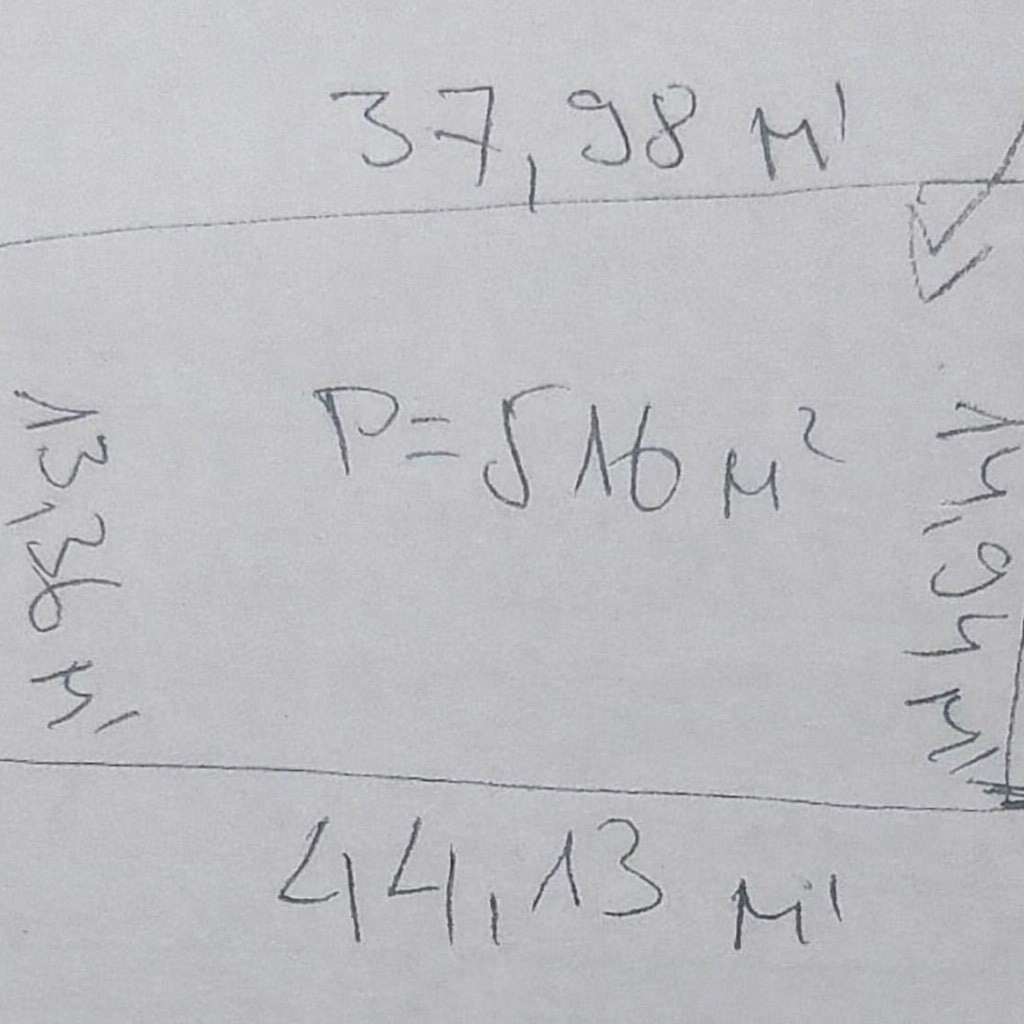 37,98 м'
13,36 м'
P=516 м²
14,94 м'
44,13 м'